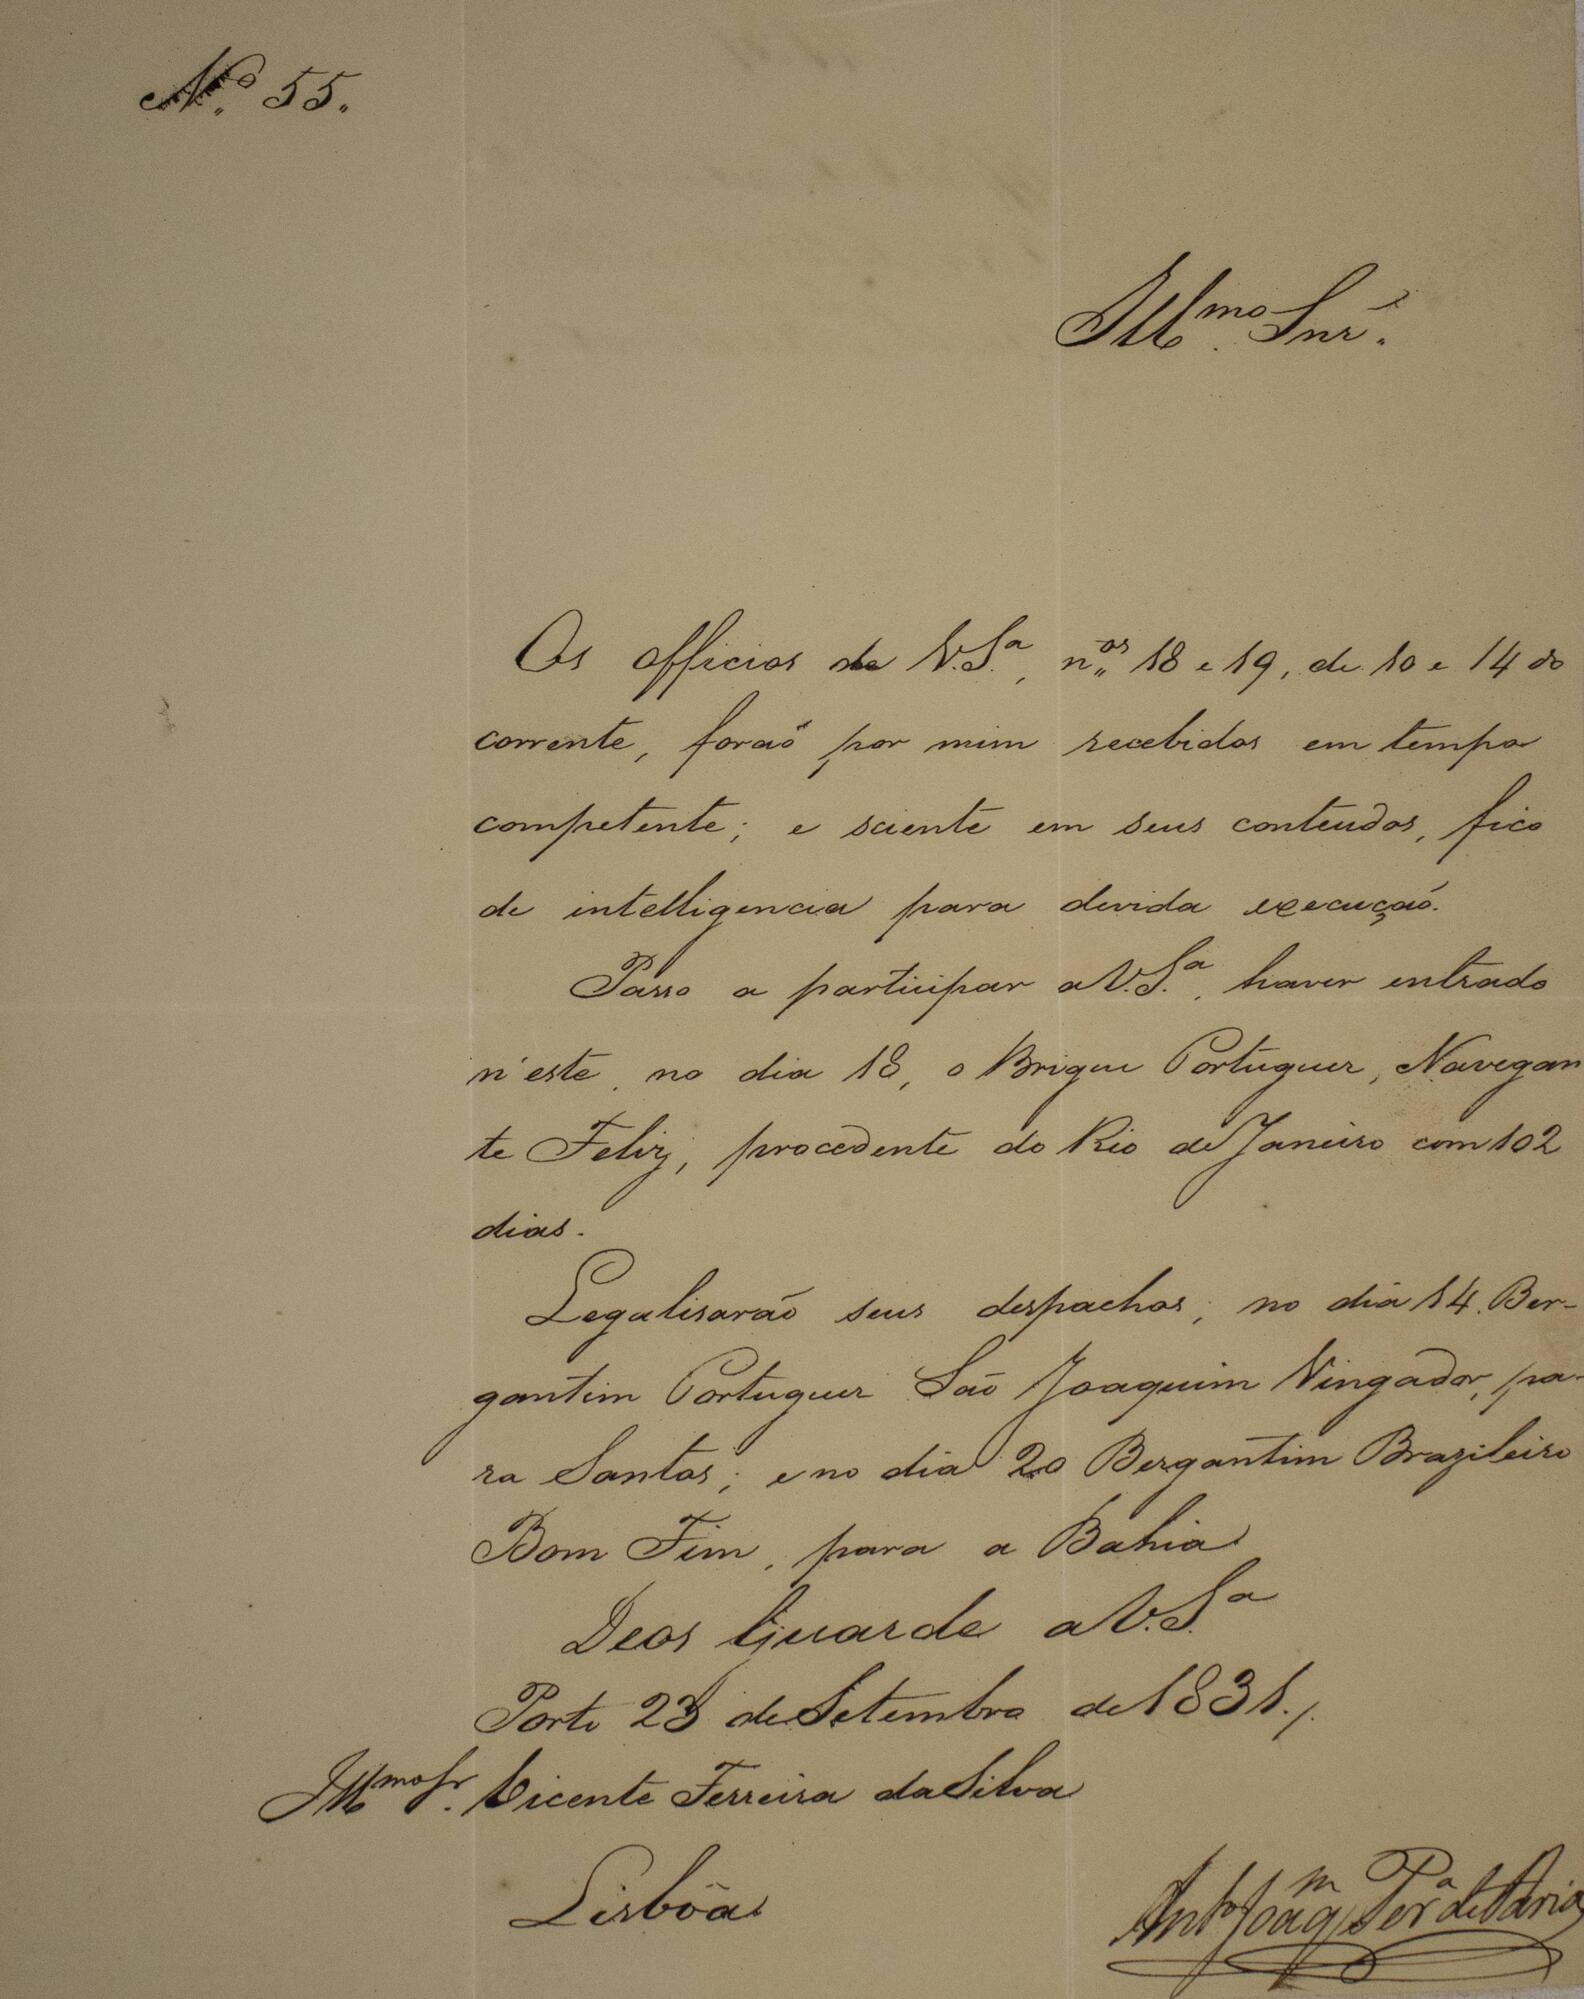 Nº 55.
Illmo. Snr.
Os officios de V.Sª, nos 18 e 19, de 10 e 14 do
corrente, forão por mim recebidos em tempo
competente; e sciente em seus conteudos, fico
de intelligencia para devida execução.
Passo a participar a V.Sª, haver entrado
n'este, no dia 18, o Brigue Portuguez, Navegan
te Feliz, procedente do Rio de Janeiro com 102
dias.
Legalisarão seus despachos; no dia 14 Ber-
gantim Portuguez São Joaquim Vingador, pa-
ra Santos; e no dia 20 Bergantim Brazileiro
Bom Fim, para a Bahia
Deos Guarde a V.Sª
Porto 23 de Setembro de 1831./.
Illmo Sr. Vicente Ferreira da Silva
Lisbôa
Antº Joaqm Perª de Faria